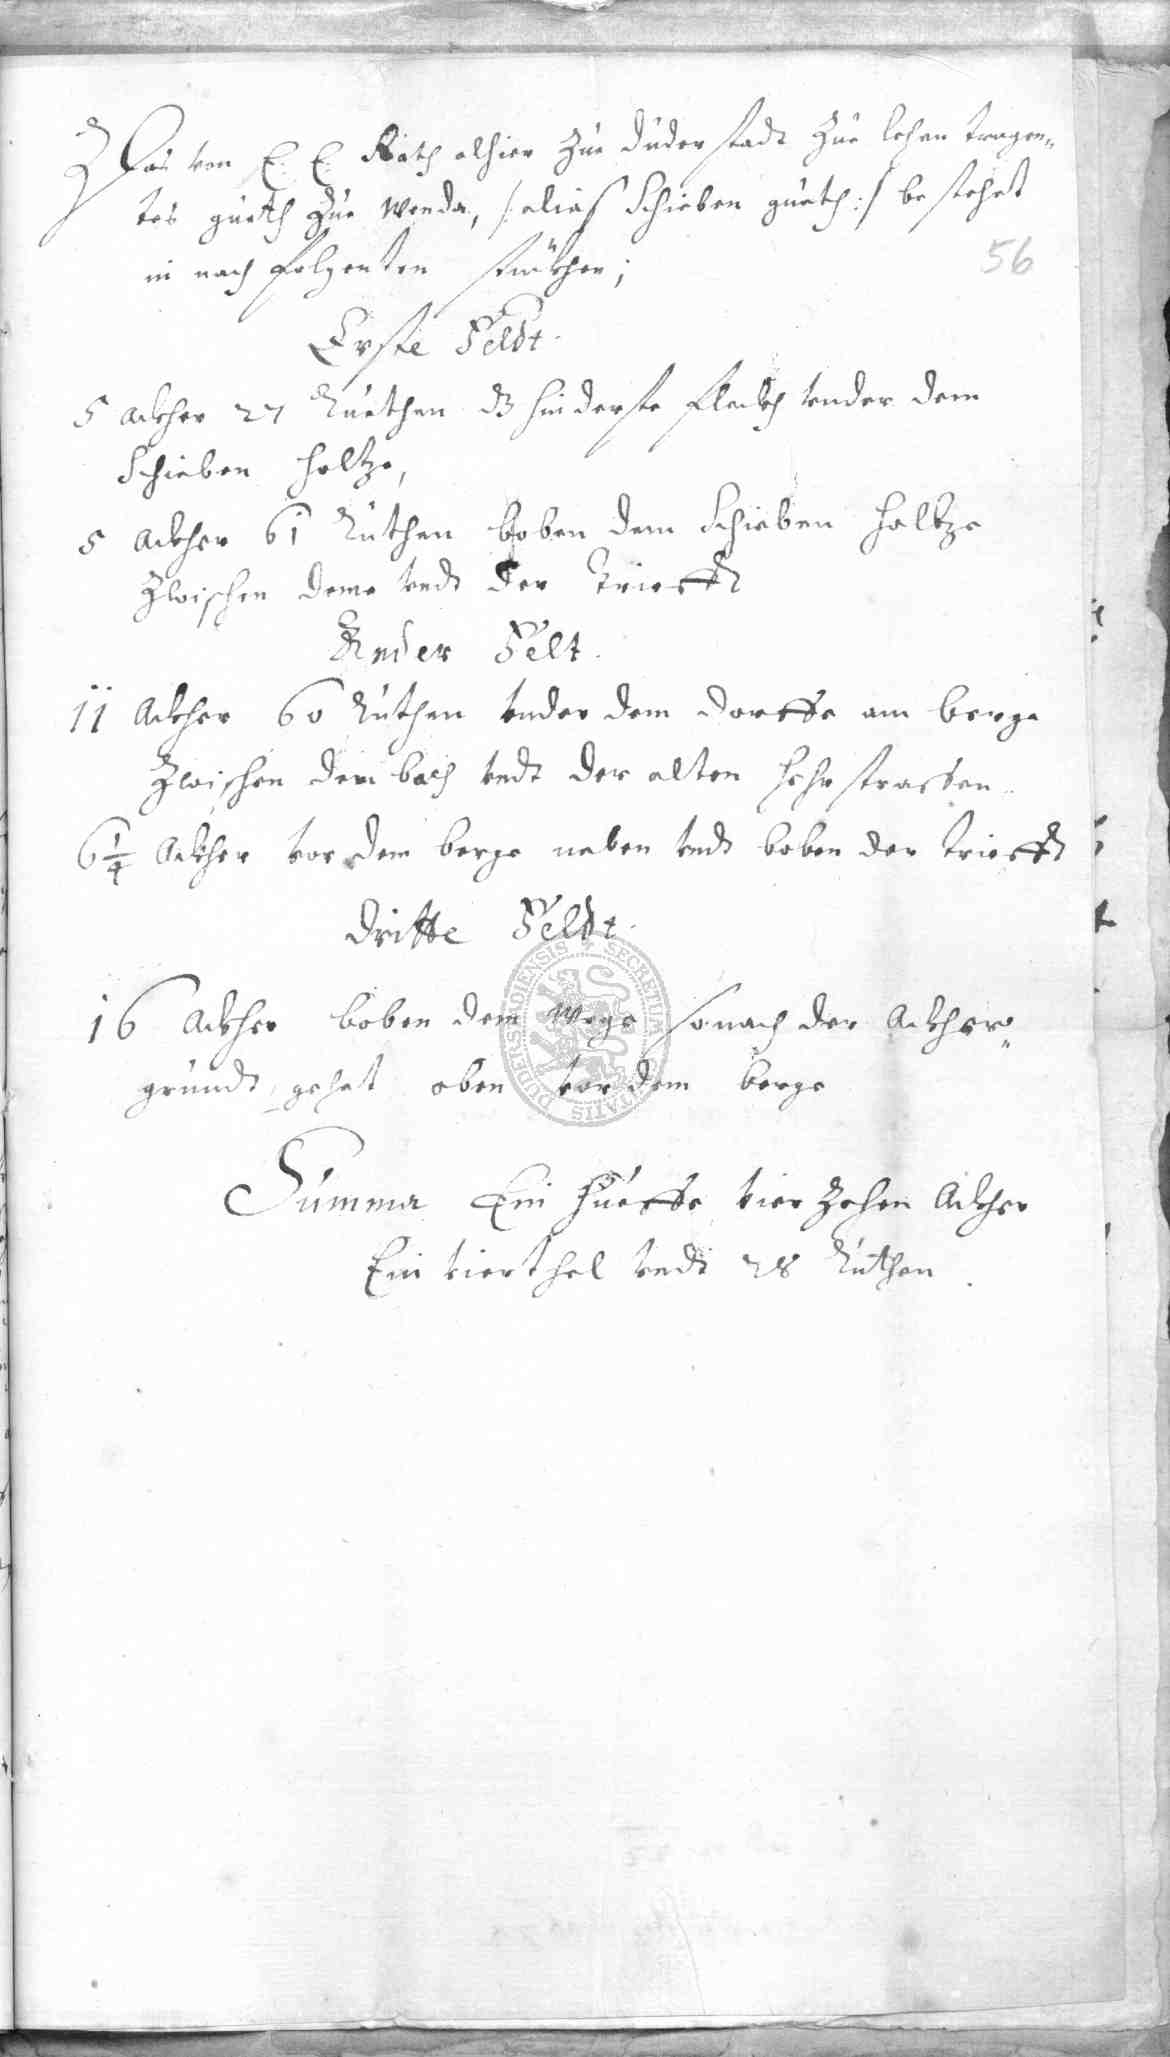 Das von E: E: Rath alhier zue duderstadt zue lehen tragen„
tes gueth zue Wenda, /: alias Schieben gueth :/ bestehet
in nach folgenten stückhen;
56
Erste Feldt.
5 Ackher 27 Ruethen dz hinderste fleckh vnder dem
Schieben holtze,
5 Ackher 61 Ruthen boben dem Schieben holtze
Zwischen deme vndt der Triefft
Ander Felt.
11 Ackher 60 Ruthen vnder dem dorffe am berge
Zwischen dem bach vndt der alten hehr strassen.
6 1/4 Ackher vor dem berge neben vndt boben der Triefft
dritte Feldt.
16 Ackher boben dem Wege so nach der Ackher„
grundt gehet oben vor dem berge
Summa Ein Hueffe vier Zehen Ackher
Ein vierthel vndt 28 Ruthen.
SECRETUM CIVITATIS DUDERSTADIENSIS